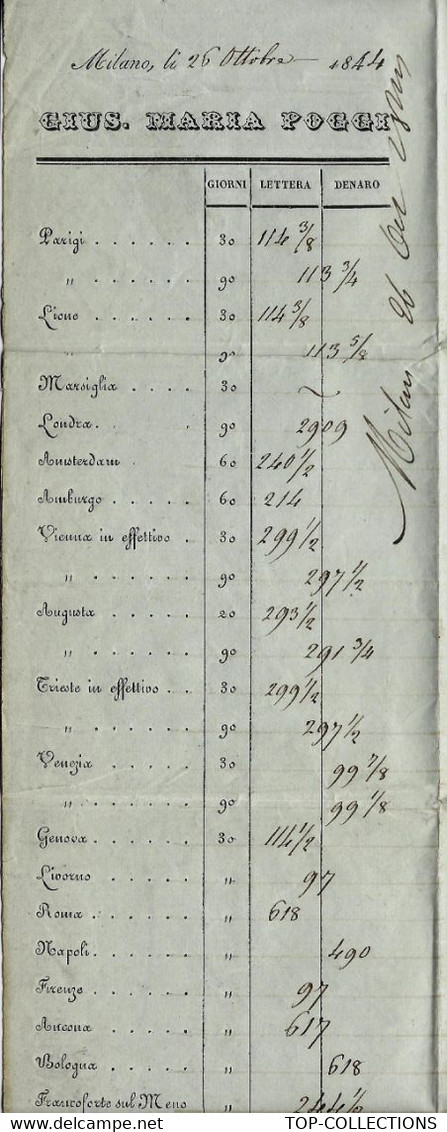 Milano, li 26 Ottobre 1844
GIUS. MARIA POGGI
GIORNI LETTERA DENARO
Parigi . . . . . . 30 114 3/8
" . . . . . . 90 113 3/4
Lione . . . . . . 30 114 3/8
" . . . . . . 90 113 5/8
Marsiglia . . . . 30 ~
Londra . . . . . . 90 2909
Amsterdam . 60 240 1/2
Amburgo . . . . . 60 214
Vienna in effettivo . 30 299 1/2
" . . . . . . 90 297 1/2
Augusta . . . . . 20 293 1/2
" . . . . . . 90 291 3/4
Trieste in effettivo . . 30 299 1/2
" . . . . . . 90 297 1/2
Venezia . . . . . 30 99 7/8
" . . . . . . 90 99 1/8
Genova . . . . . . 30 114 1/2
Livorno . . . . . " 97
Roma . . . . . . " 618
Napoli . . . . . . " 490
Firenze . . . . . . " 97
Ancona . . . . . " 617
Bologna . . . . . " 618
Francoforte sul Meno " 244 1/2
Milan 26 Oct
TOP-COLLECTIONS